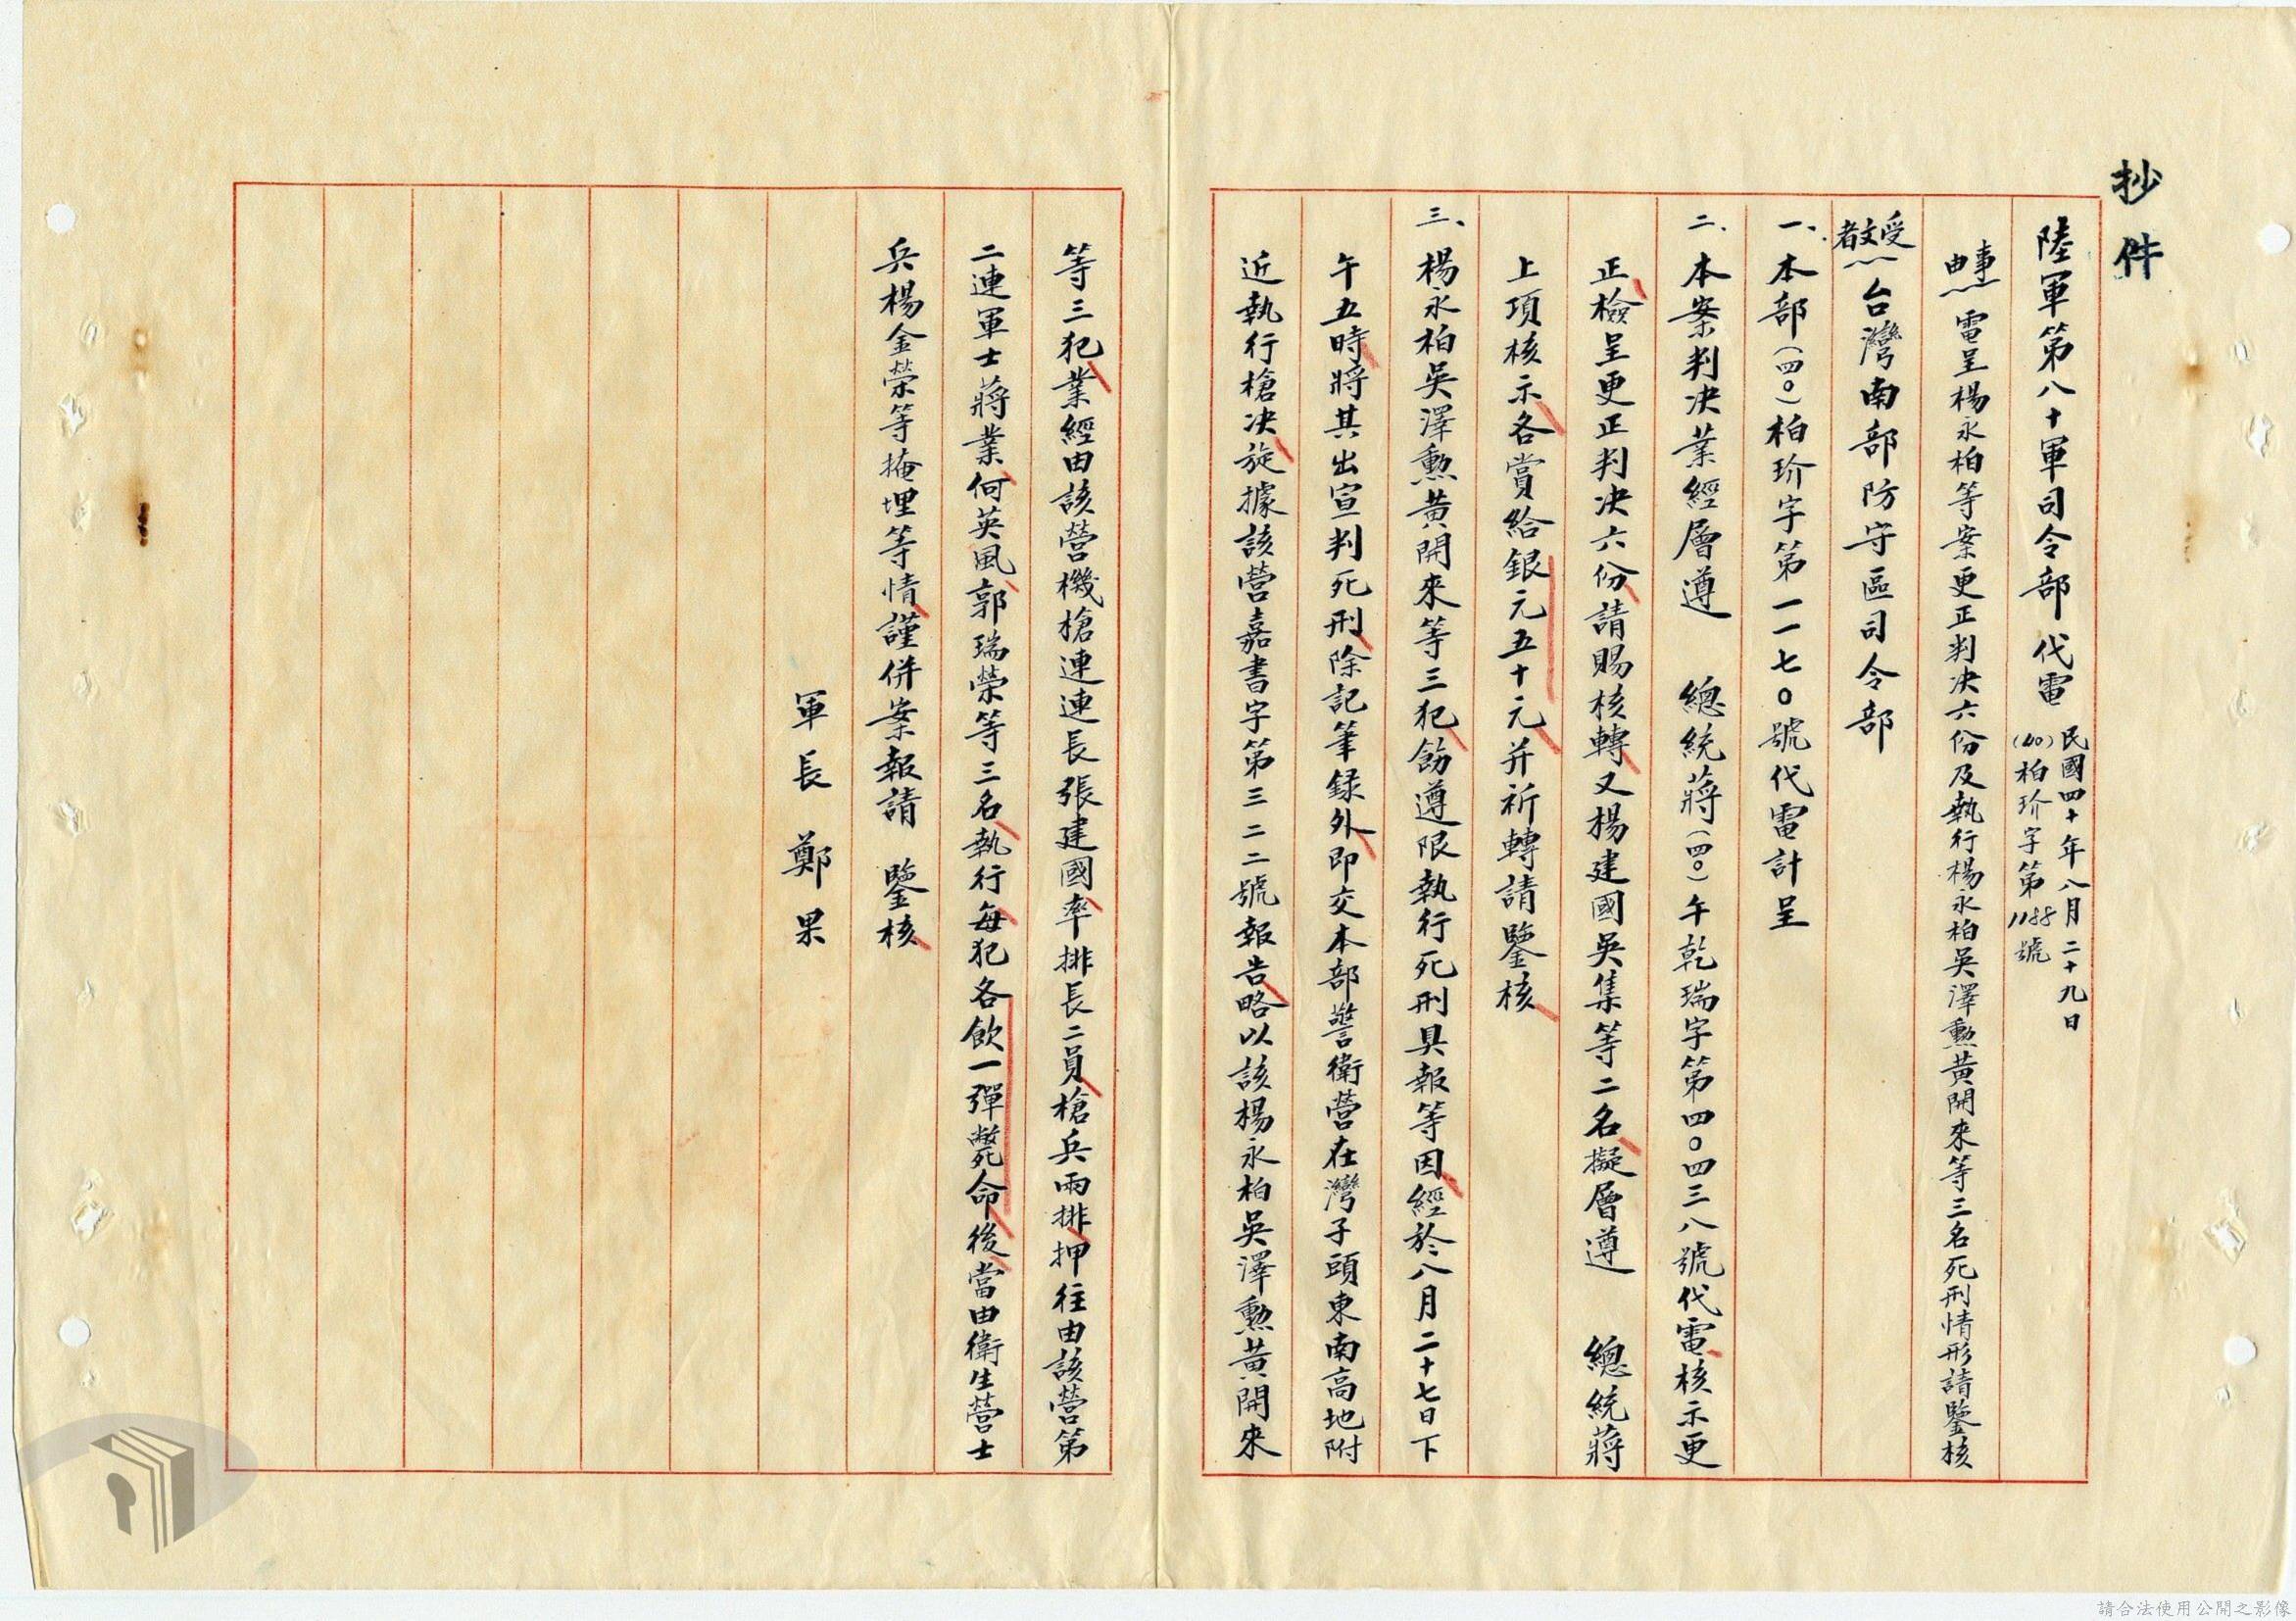 抄件
陸軍第八十軍司令部代電
民國四十年八月二十九日
(40)柏玠字第1188號
事由：電呈楊永柏等案更正判決六份及執行楊永柏吳澤勲黃開來等三名死刑情形請鑒核
受文者：台灣南部防守區司令部
一、本部(四〇)柏玠字第一一七〇號代電計呈
二、本案判決業經層遵　總統蔣(四〇)午乾瑞字第四〇四三八號代電核示更
正檢呈更正判決六份請賜核轉又楊建國吳集等二名擬層遵　總統蔣
上項核示各賞給銀元五十元并祈轉請鑒核
三、楊永柏吳澤勲黃開來等三犯飭遵限執行死刑具報等因經於八月二十七日下
午五時將其出宣判死刑除記筆録外即交本部警衛營在灣子頭東南高地附
近執行槍決旋據該營嘉書字第三二二號報告略以該楊永柏吳澤勲黃開來
等三犯業經由該營機槍連連長張建國率排長二員槍兵兩排押往由該營第
二連軍士蔣業何英風郭瑞榮等三名執行每犯各飲一彈斃命後當由衛生營士
兵楊金榮等掩埋等情謹併案報請　鑒核
軍長　鄭果
請合法使用公開之影像